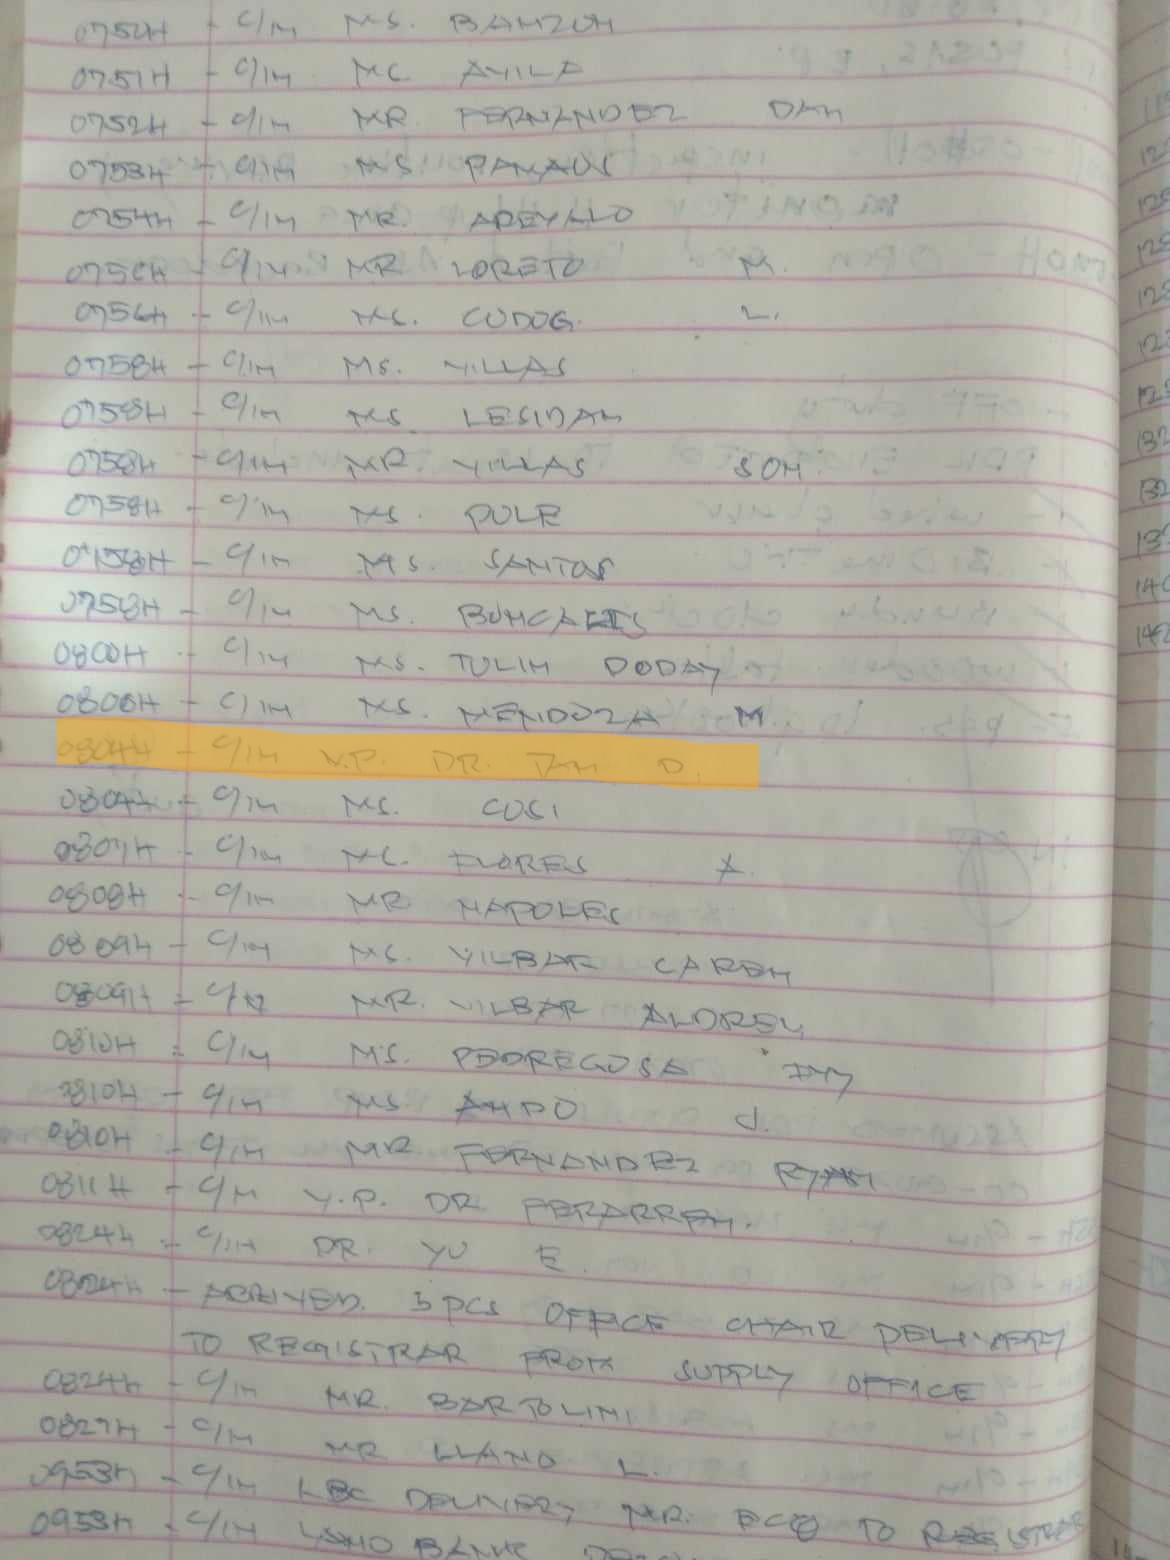 0750H - C/IM MS. BAHZON
0751H - C/IM MS AVILA
0752H - C/IM MR. FERNANDEZ DAN
0753H - C/IM MS.
0754H - C/IM MR. AREVALO
0756H - C/IM MR LORETO M.
0756H - C/IM MS. CUDOG. L.
0758H - C/IM MS. VILLAS
0758H - C/IM MS LESIDAN
0758H - C/IM MR. VILLAS SON
0758H - C/IM MS. PULE
0758H - C/IM MS. SANTOS
0758H - C/IM MS.
0800H - C/IM MS. TULIN DODAY
0800H - C/IM MS. MENDOZA M.
0804H - C/IM V.P. DR. TAN D.
0804H - C/IM MS. COSI
0807H - C/IM MS. FLORES A.
0808H - C/IM MR NAPOLES
0809H - C/IM MS. VILBAR CAREN
0809H - C/IM MR. VILBAR ALDREY
0810H - C/IM MS. PEDREGOSA IVY
0810H - C/IM MS ANDO J.
0810H - C/IM MR FERNANDEZ RYAN
0811H - C/IM V.P. DR. FERARREN.
0824H - C/IM DR. YU E.
0824H - ARRIVED. 3 PCS OFFICE CHAIR DELIVERY
TO REGISTRAR FROM SUPPLY OFFICE
0824H - C/IM MR. BARTOLINI
0827H - C/IM MR LLANO L.
0953H - C/IM LBC DELIVERY MR. TO REGISTRAR
0953H - C/IM BANK